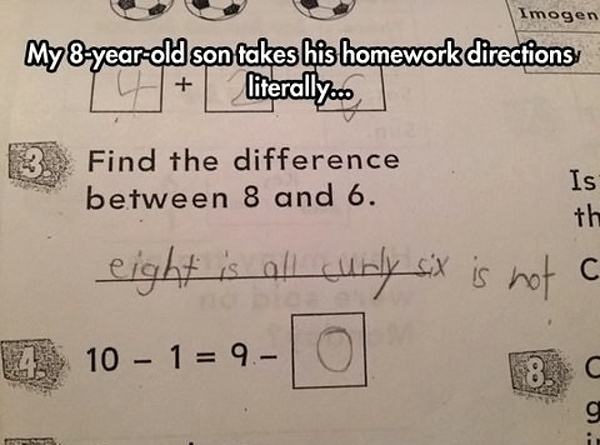 Imogen
My 8-year-old son takes his homework directions
literally...
4 + 2 6
3. Find the difference
between 8 and 6.
eight is all curly six is not
4. 10 - 1 = 9 - 0
Is
th
C
8. C
g